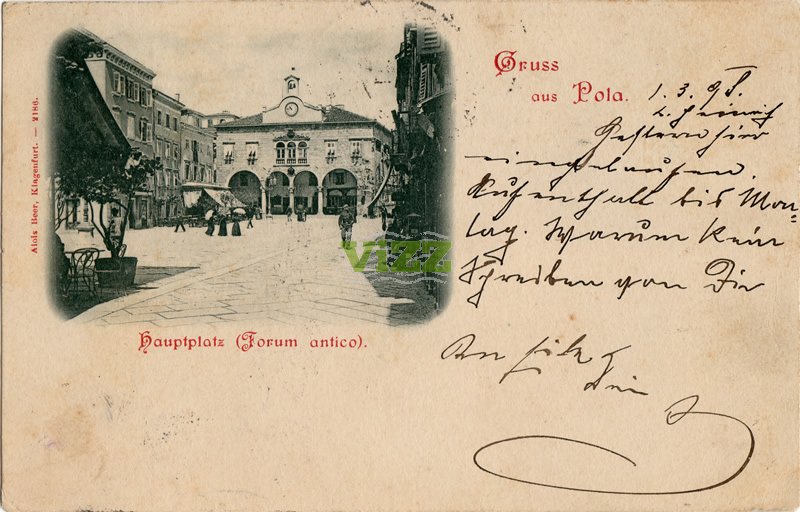 Gruss
aus Pola.
Alois Beer, Klagenfurt. — 2186.
1. 3. 98.
L. Heinrich
Gestern hier
eingelaufen.
Aufenthalt bis Mon-
tag. Warum kein
Schreiben von Dir
Dein
Hauptplatz (Forum antico).
VIZZ